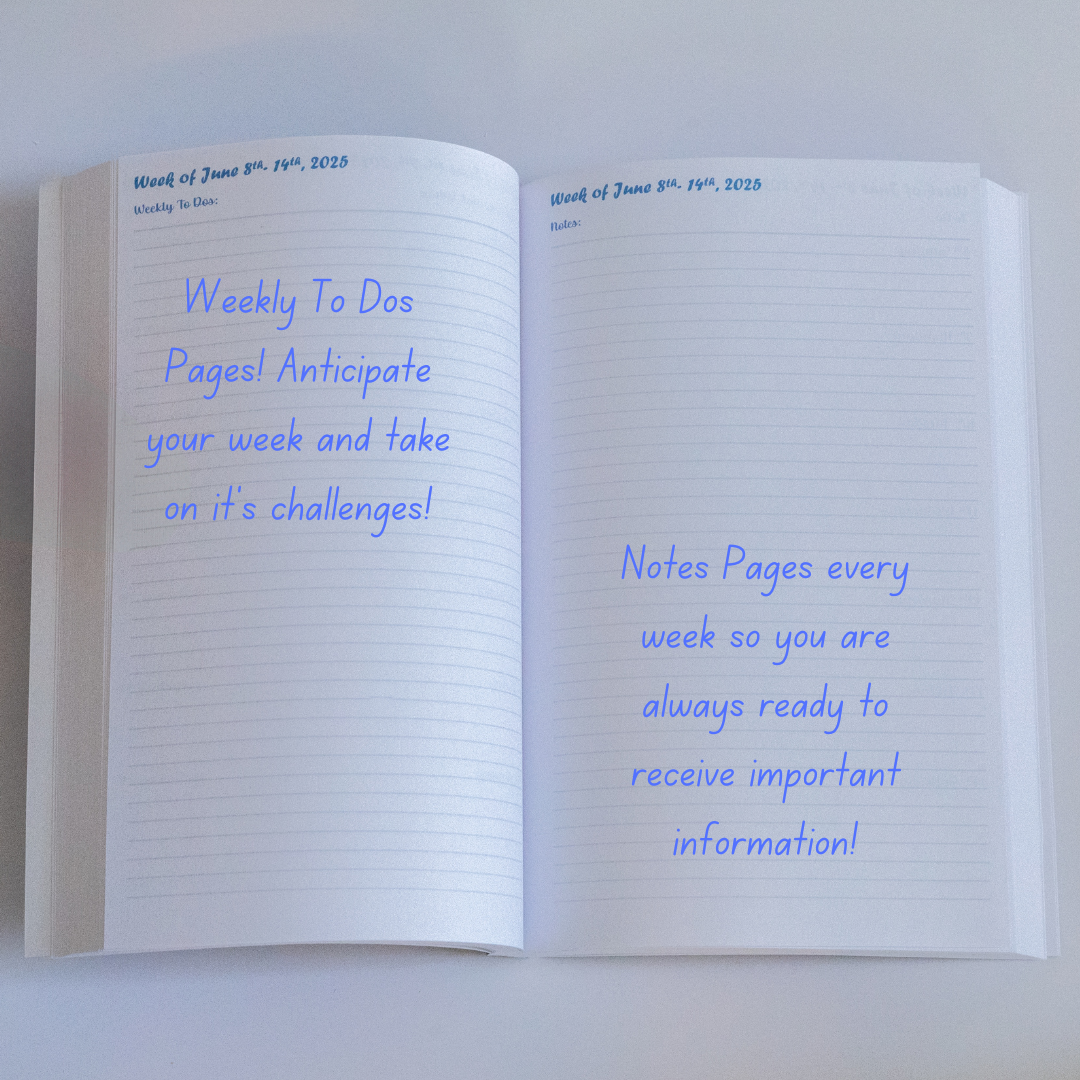 Week of June 8th- 14th, 2025
Weekly To Dos:
Weekly To Dos
Pages! Anticipate
your week and take
on it's challenges!
Week of June 8th- 14th, 2025
Notes:
Notes Pages every
week so you are
always ready to
receive important
information!